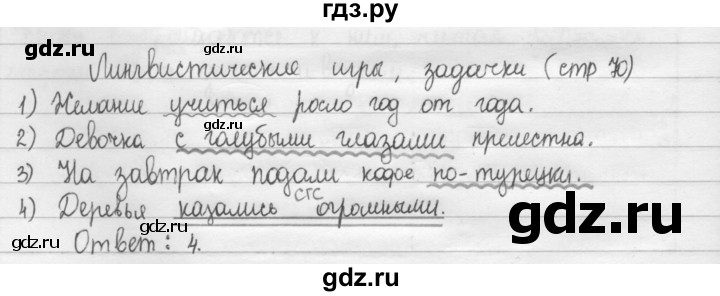 гдз.ру
gdz.ru gdz.ru gdz.ru
Лингвистические игры, задачки (стр 70)
1) Желание учиться росло год от года.
gdz.ru gdz.ru
2) Девочка с голубыми глазами прелестна.
3) На завтрак подали кофе по-турецки.
СГС
4) Деревья казались огромными.
gdz.ru gdz.ru gdz.ru
Ответ: 4.
gdz.ru